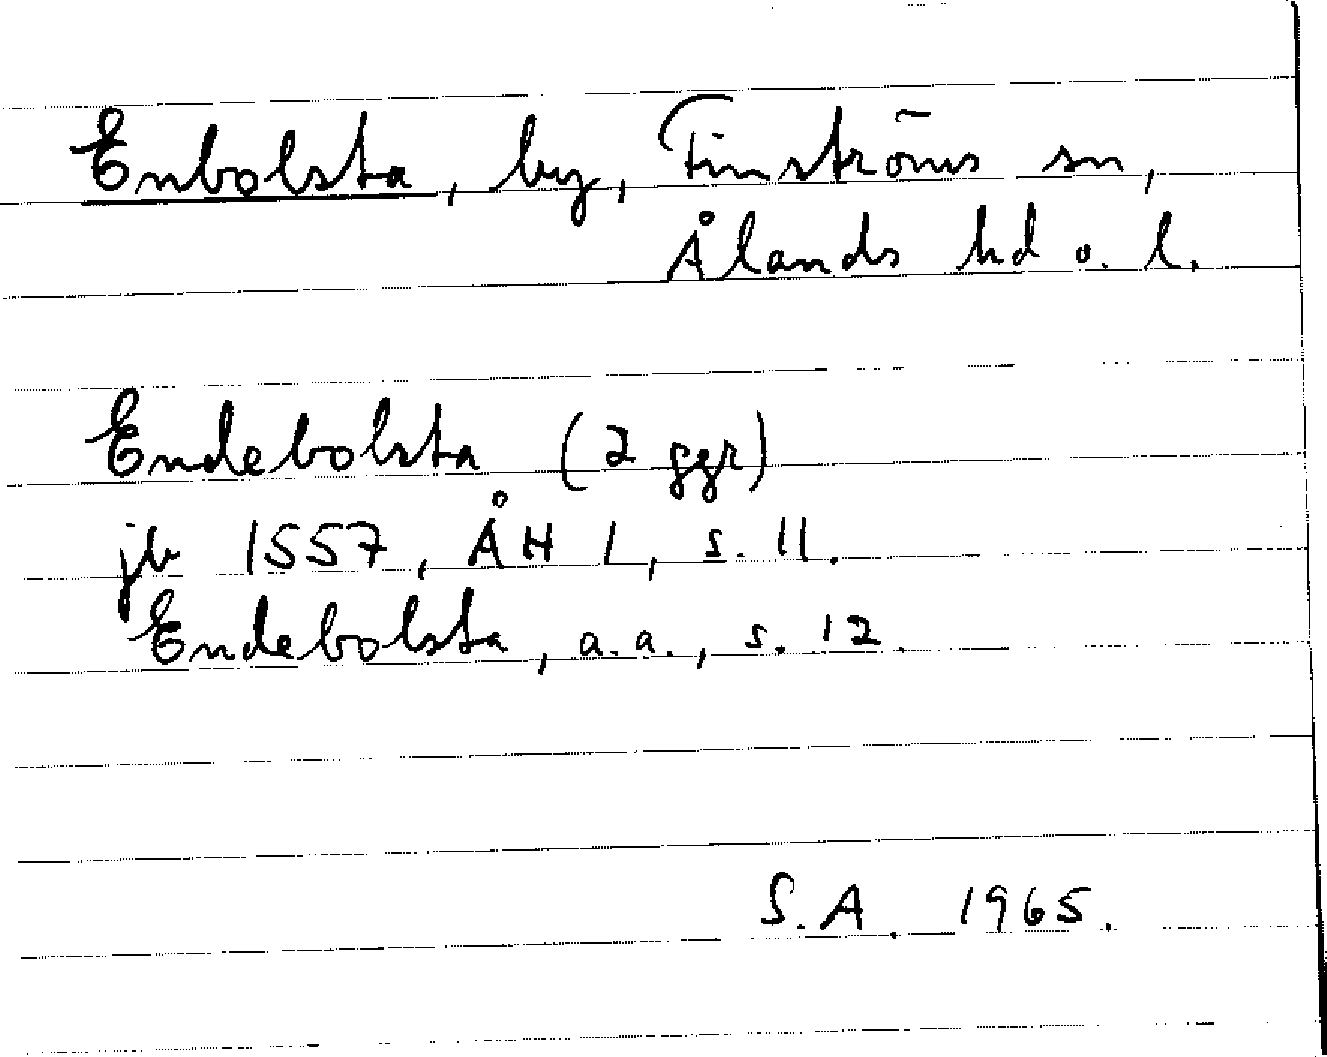 Enbolsta, by, Finströms sn,
Ålands hd o. l.
Endebolsta (2 ggr)
jb 1557, ÅH I, s. 11.
Endebolsta, a.a., s. 12.
S.A. 1965.